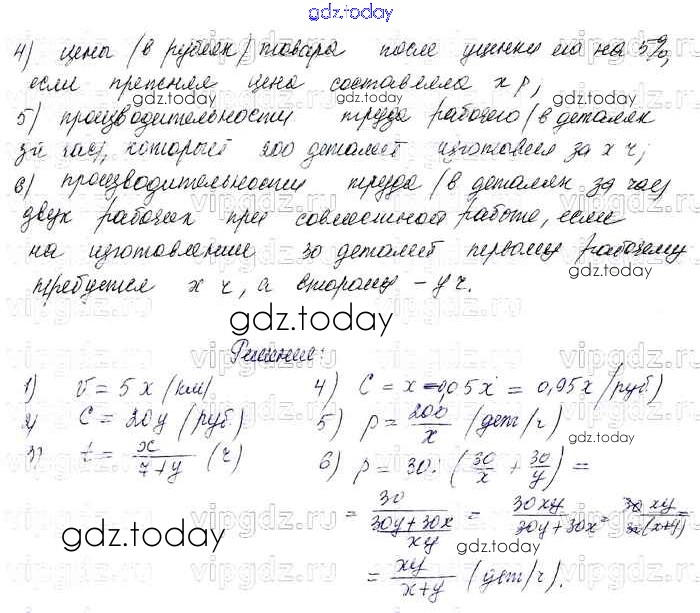 gdz.today
4) цены (в рублях) товара после уценки его на 5%,
если прежняя цена составляла x р;
gdz.today gdz.today
5) производительности труда рабочего (в деталях
за час), который 200 деталей изготовил за x ч;
gdz.today gdz.today
6) производительности труда (в деталях за час)
двух рабочих при совместной работе, если
на изготовление 30 деталей первому рабочему
gdz.today
требуется x ч, а второму - y ч.
gdz.today
Решение:
1) v = 5x (км) 4) C = x - 0,05x = 0,95x (руб.)
2) C = 20y (руб.) 5) p = 200/x (дет/ч)
gdz.today gdz.today
3) t = x/(7+y) (ч) 6) p = 30 : (30/x + 30/y) =
= 30/((30y+30x)/xy) = 30xy/(30y+30x) = 30xy/30(x+y) =
gdz.today gdz.today
= xy/(x+y) (дет/ч).